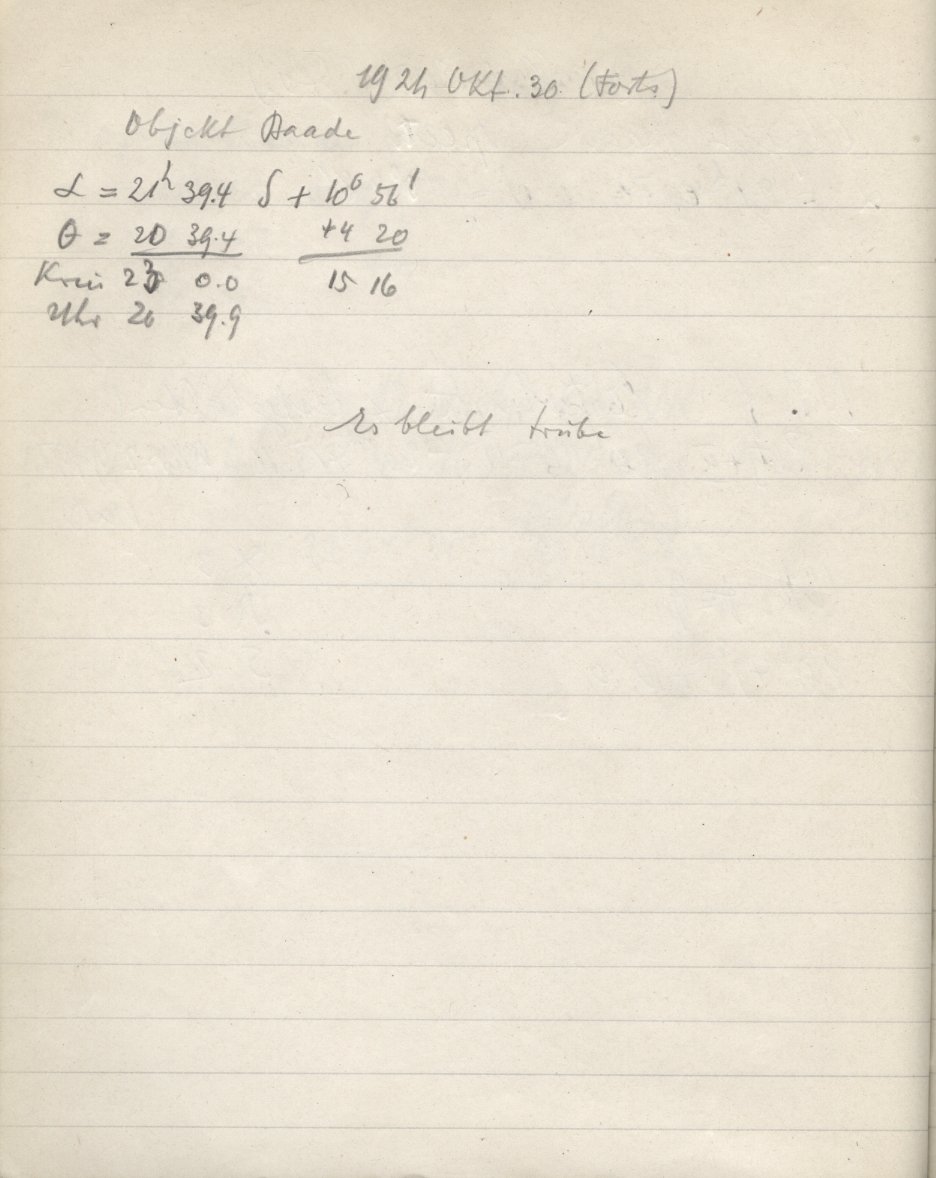 1924 Okt. 30 (Forts)
Objekt Baade
α = 21h 39.4 δ + 10° 56'
θ = 20 39.4 +4 20
Kreis 23 0.0 15 16
Uhr 20 39.9
Es bleibt trübe